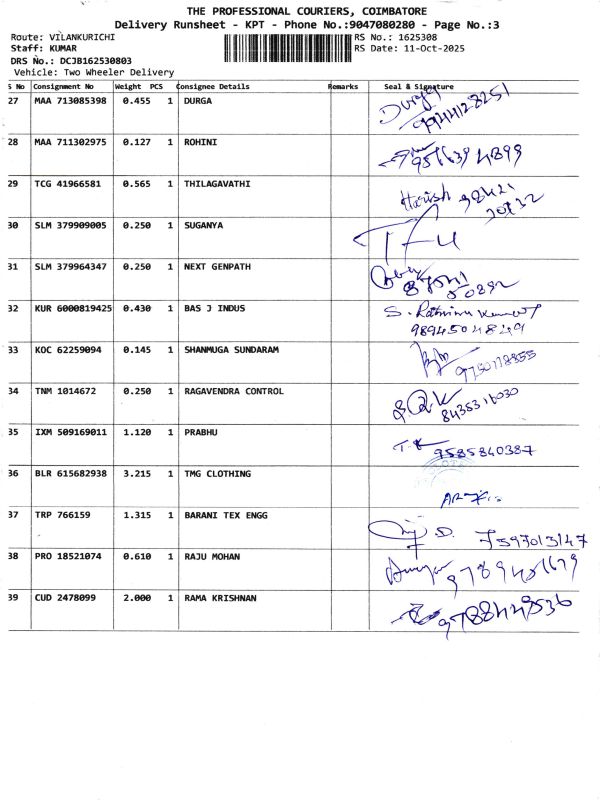 THE PROFESSIONAL COURIERS, COIMBATORE
Delivery Runsheet - KPT - Phone No.:9047080280 - Page No.:3
Route: VILANKURICHI RS No.: 1625308
Staff: KUMAR RS Date: 11-Oct-2025
DRS No.: DCJB162530803
Vehicle: Two Wheeler Delivery
S No Consignment No Weight PCS Consignee Details Remarks Seal & Signature
27 MAA 713085398 0.455 1 DURGA Durga
9944128251
28 MAA 711302975 0.127 1 ROHINI
29 TCG 41966581 0.565 1 THILAGAVATHI Harish 98421
20132
30 SLM 379909005 0.250 1 SUGANYA
31 SLM 379964347 0.250 1 NEXT GENPATH
50892
32 KUR 6000819425 0.430 1 BAS J INDUS S.
9894504849
33 KOC 62259094 0.145 1 SHANMUGA SUNDARAM
34 TNM 1014672 0.250 1 RAGAVENDRA CONTROL
8435316030
35 IXM 509169011 1.120 1 PRABHU T.K
9585840387
36 BLR 615682938 3.215 1 TMG CLOTHING
37 TRP 766159 1.315 1 BARANI TEX ENGG D. 7597013147
38 PRO 18521074 0.610 1 RAJU MOHAN
39 CUD 2478099 2.000 1 RAMA KRISHNAN 9788448536